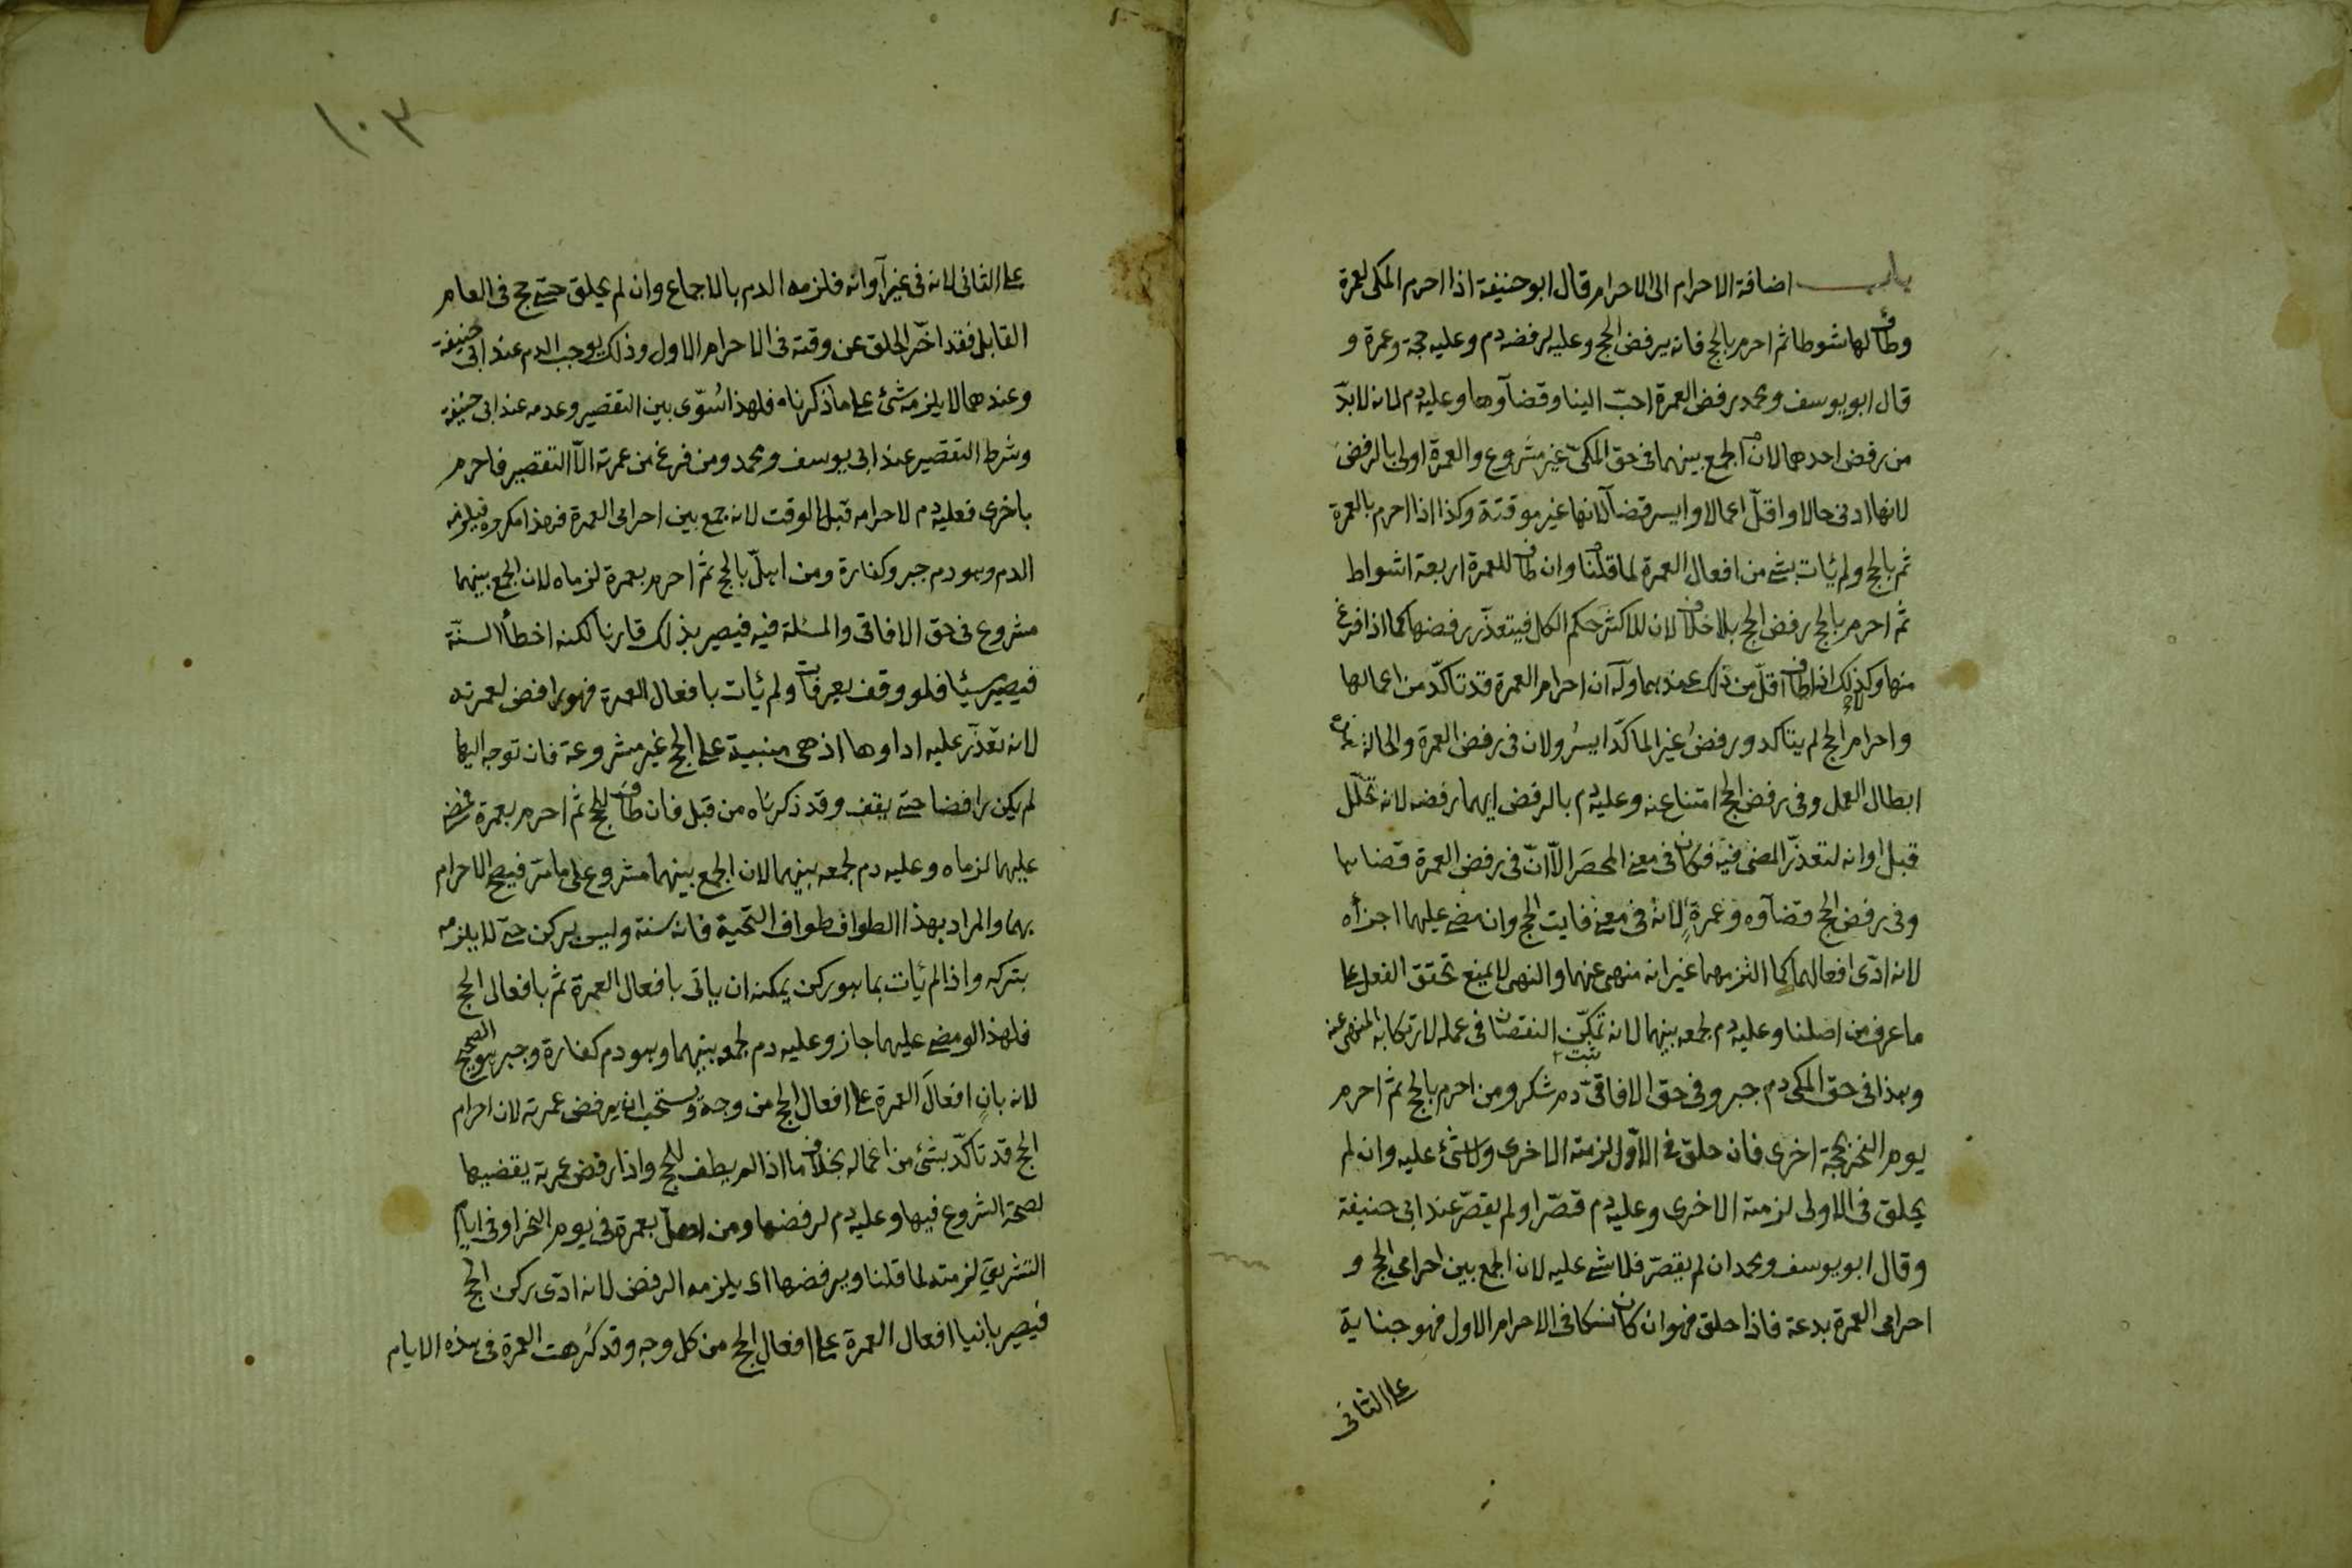 باب اضافة الاحرام الى الاحرام قال ابو حنيفة اذا احرم المكى بعمرة
وطاف لها شوطا ثم احرم بالحج فانه يرفض الحج وعليه لرفضه دم وعليه حجة وعمرة و
قال ابو يوسف ومحمد رفض العمرة احبّ الينا وقضآوها وعليه دم لانه لا بدّ
من رفض احدهما لان الجمع بينهما فى حق المكىّ غير مشروع والعمرة اولى بالرفض
لانها ادنى حالا واقلّ اعمالا وايسر قضآ لانها غير موقتة وكذا اذا احرم بالعمرة
ثم بالحج ولم يأت بشئ من افعال العمرة لما قلنا وان طاف للعمرة اربعة اشواط
ثم احرم بالحج رفض الحج بلا خلاف لان للاكثر حكم الكل فيتعذّر رفضها كما اذا فرغ
منها وكذلك اذا طاف اقلّ من ذلك عندهما وله ان احرام العمرة قد تاكّد من اعمالها
واحرام الحج لم يتاكد ورفض غير المتاكّد ايسر ولان فى رفض العمرة والحالة هذه
ابطال العمل وفى رفض الحج امتناع عنه وعليه دم بالرفض ايهما رفضه لانه تحلّل
قبل اوانه لتعذّر المضى فيه فكان فى معنى المحصَر الّا انّ فى رفض العمرة قضاها
وفى رفض الحج قضآوه وعمرةٍ لانه فى معنى فايت الحج وان مضى عليهما اجزأه
لانه ادّى افعالهما كما التزمهما غير انه منهى عنهما والنهى لا يمنع تحقق الفعل على
ما عرف من اصلنا وعليه دم لجمعه بينهما لانه تمكّن النقصان فى عمله لارتكابه المنهى عنه
وهذا فى حق المكى دم جبر وفى حق الافاقىّ دم شكر ومن احرم بالحج ثم احرم
يوم النحر بحجة اخرى فان حلق فى الاوّل لزمته الاخرى ولا شئ عليه وان لم
يحلق فى الاولى لزمته الاخرى وعليه دم قصّر او لم يقصّر عند ابى حنيفة
وقال ابو يوسف ومحمد ان لم يقصّر فلا شئ عليه لان الجمع بين احرامى الحج و
احرامى العمرة بدعة فاذا حلق فهو ان كان نسكا فى الاحرام الاول فهو جناية
على الثانى
١٠٣
على الثانى لانه فى غير آوانه فلزمه الدم بالاجماع وان لم يحلق حتى حج فى العام
القابل فقد اخّر الحلق عن وقته فى الاحرام الاول وذلك يوجب الدم عند ابى حنيفة
وعندهما لا يلزمه شئ على ما ذكرناه فلهذا سُوّى بين التقصير وعدمه عند ابى حنيفة
وشرط التقصير عند ابى يوسف ومحمد ومن فرغ من عمرته الّا التقصير فاحرم
باخرى فعليه دم لاحرامه قبل الوقت لانه جمع بين احرامى العمرة فهذا مكروه فيلزمه
الدم وهو دم جبر وكفارة ومن اهلّ بالحج ثم احرم بعمرة لزماه لان الجمع بينهما
مشروع فى حق الافاقى والمسئلة فيه فيصير بذلك قارنا لكنه اخطأ السنّة
فيصير مسيئا فلو وقف بعرفات ولم يأت بافعال العمرة فهو رافض لعمرته
لانه تعذّر عليه اداوها اذ هى مبنية على الحج غير مشروعة فان توجه اليها
لم يكن رافضا حتى يقف وقد ذكرناه من قبل فان طاف للحج ثم احرم بعمرة فمضى
عليهما لزماه وعليه دم لجمعه بينهما لان الجمع بينهما مشروع على ما مرّ فيصح الاحرام
بهما والمراد بهذا الطواف طواف التحية فانه سنة وليس بركن حتى لا يلزمه
بتركه واذا لم يأت بما هو ركن يمكنه ان ياتى بافعال العمرة ثم بافعال الحج
فلهذا لو مضى عليهما جاز وعليه دم لجمعه بينهما وهو دم كفارة وجبر هو الصحيح
لانه بانٍ افعالَ العمرة على افعال الحج من وجه ويستحب ان يرفض عمرته لان احرام
الحج قد تاكّد بشئ من اعماله بخلاف ما اذا لم يطف للحج واذا رفض عمرته يقضيها
لصحة الشروع فيها وعليه دم لرفضها ومن اهلّ بعمرة فى يوم النحر او فى ايام
التشريق لزمته لما قلنا ويرفضها اى يلزمه الرفض لانه ادّى ركن الحج
فيصير بانيا افعال العمرة على افعال الحج من كل وجه وقد كُرهت العمرة فى هذه الايام